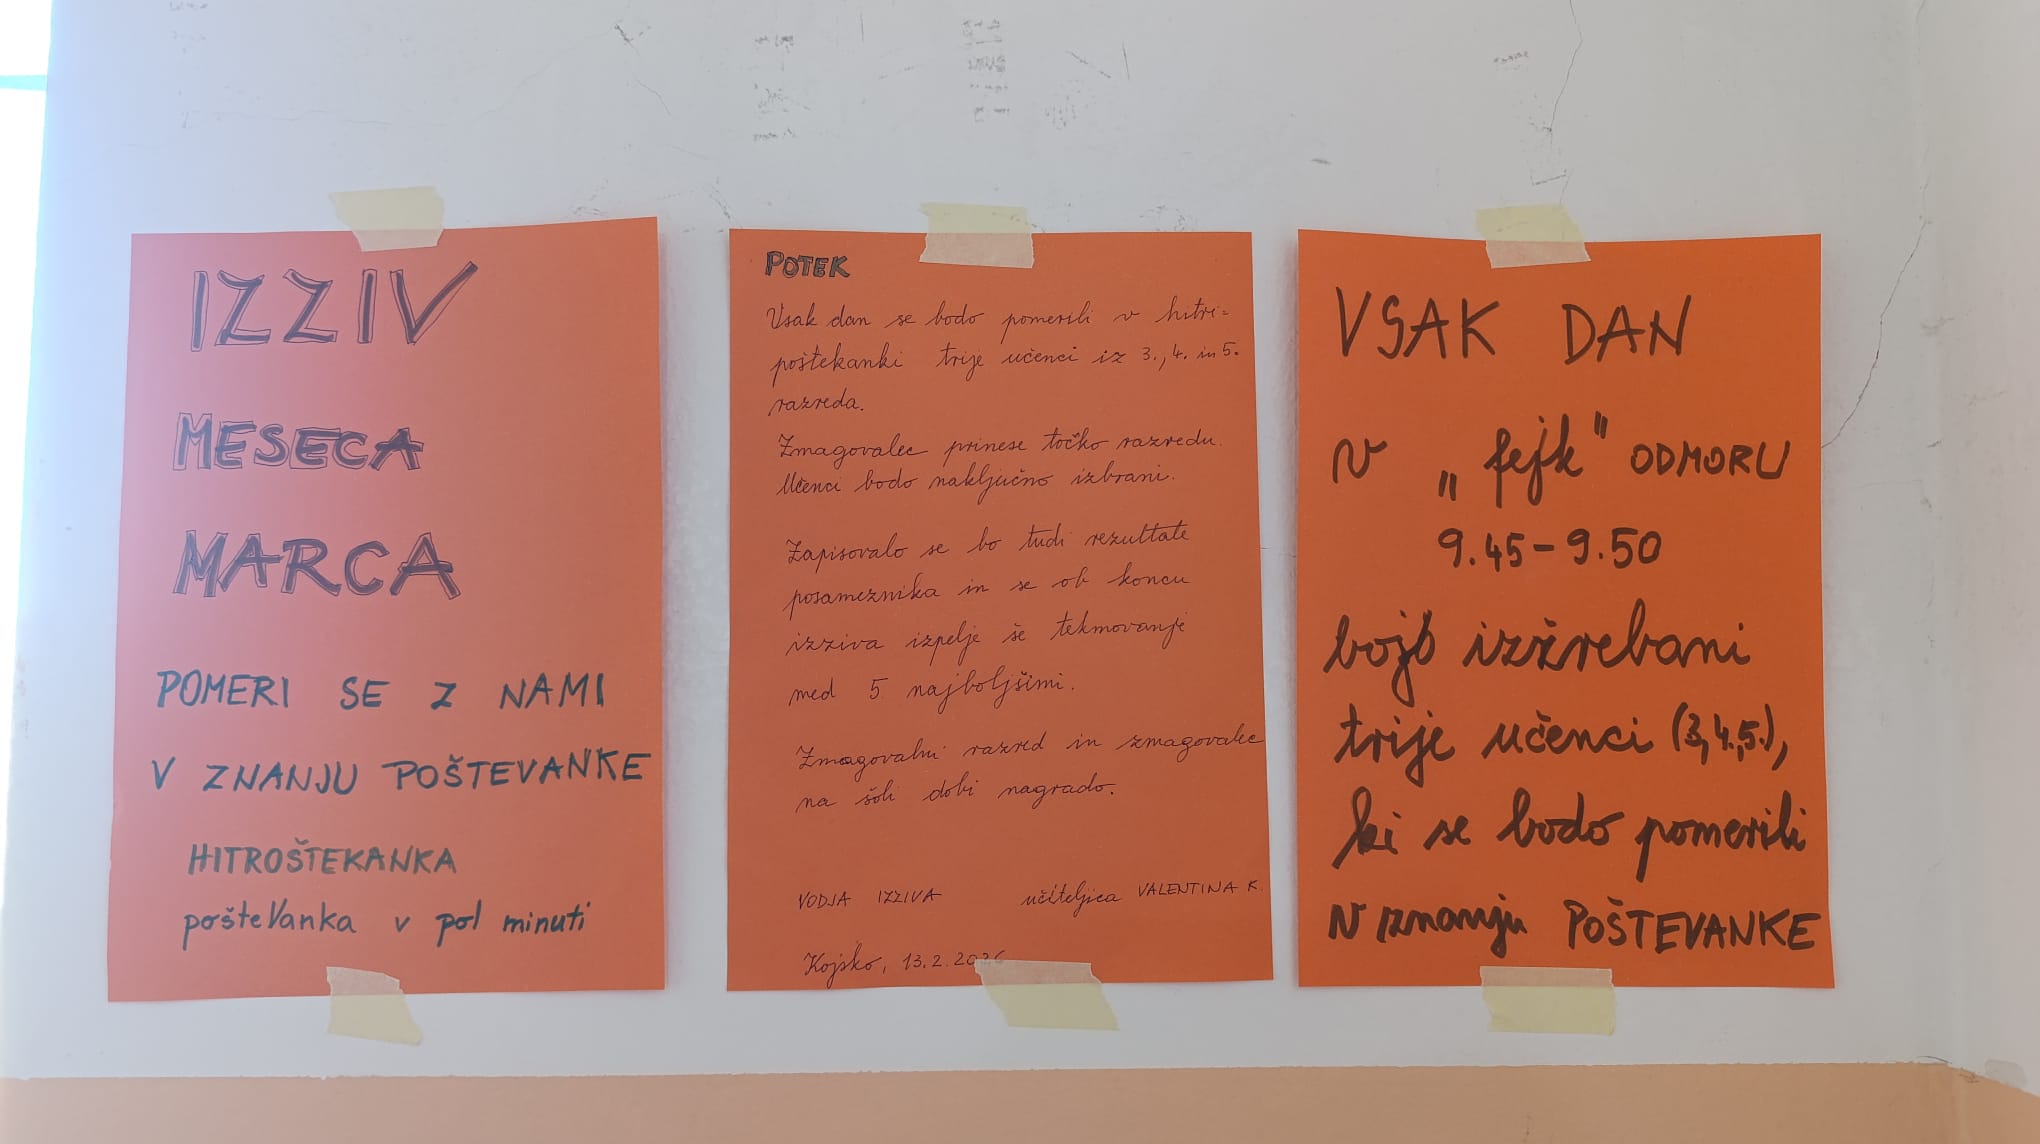 IZZIV
MESECA
MARCA
POMERI SE Z NAMI
V ZNANJU POŠTEVANKE
HITROŠTEKANKA
pošteVanka v pol minuti
POTEK
Vsak dan se bodo pomerili v hitri=
poštekanki trije učenci iz 3., 4. in 5.
razreda.
Zmagovalec prinese točko razredu.
Učenci bodo naključno izbrani.
Zapisovalo se bo tudi rezultate
posameznika in se ob koncu
izziva izpelje še tekmovanje
med 5 najboljšimi.
Zmagovalni razred in zmagovalec
na šoli dobi nagrado.
VODJA IZZIVA učiteljica VALENTINA K.
Kojsko, 13.2.2026
VSAK DAN
v „fejk" ODMORU
9.45-9.50
bojo izžrebani
trije učenci (3,4.,5.),
ki se bodo pomerili
v znanju POŠTEVANKE